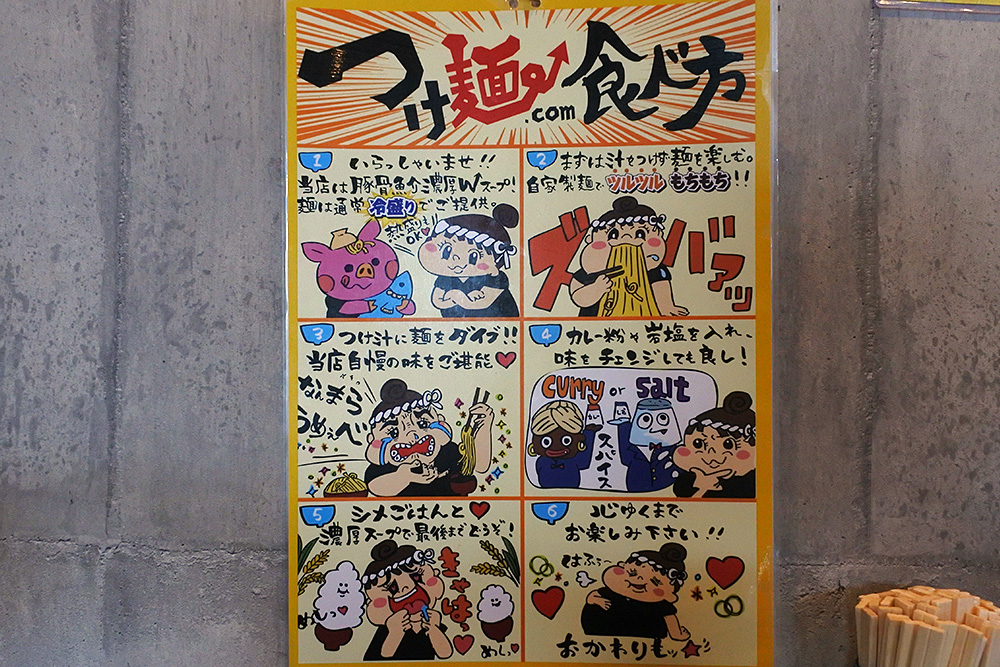 つけ麺.com 食べ方
1 いらっしゃいませ!!
当店は豚骨魚介濃厚Wスープ!
麺は通常冷盛りでご提供。
熱盛りもOK♡
2 まずは汁をつけず麺を楽しむ。
自家製麺でツルツルもちもち!!
ズバァッ
3 つけ汁に麺をダイブ!!
当店自慢の味をご堪能♥
なんまら
うめぇべ
4 カレー粉や岩塩を入れ、
味をチェンジしても良し!
curry or salt
カレー
しお
スパイス
5 シメごはんと♥
濃厚スープで最後までどうぞ!
きゃほっ♥
めしっ♥
めしっ♥
6 心ゆくまで
お楽しみ下さい!!
はふぅ〜
おかわりもッ★